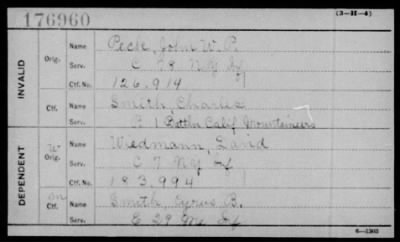 176960
(3-H-4)
INVALID
Orig. Name Peck, John W. P.
Serv. C 78 N.Y. Inf
Ctf. No. 126.914
Ctf. Name Smith, Charles
Serv. B 1 Battln Calif Mountaineers
DEPENDENT
W Orig. Name Wiedmann, David
Serv. C 7 N.Y. Inf
Ctf. No. 183.994
Ctf. Name Smith, Cyrus B.
Serv. E 29 Inf
6-1303